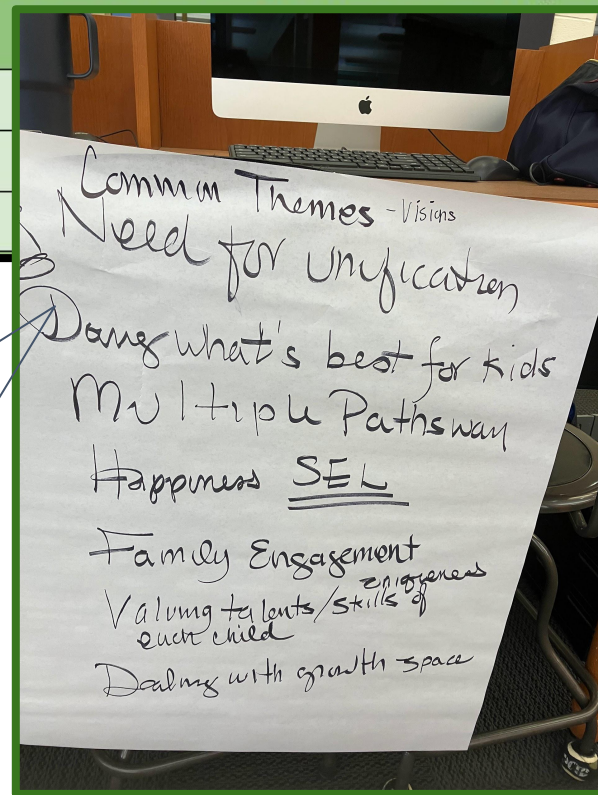 Common Themes - Visions
Need for unification
Doing what's best for kids
Multiple Pathsway
Happiness SEL
Family Engagement
Valuing talents/skills of uniqueness
each child
Dealing with growth space